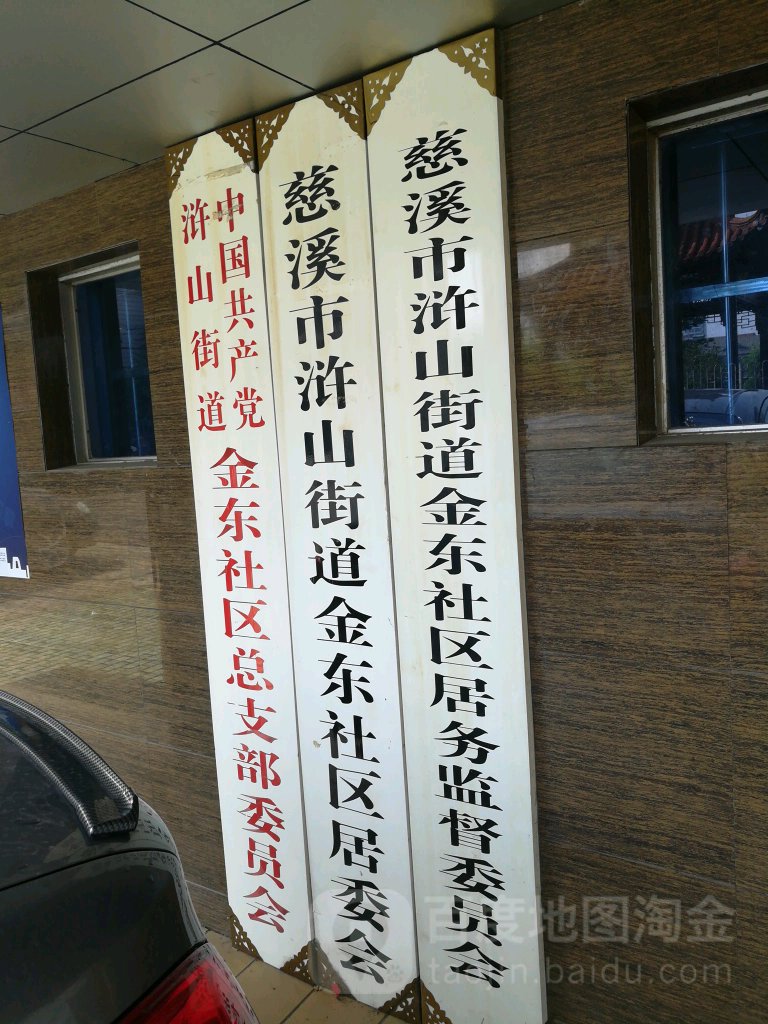 中国共产党
浒山街道
金东社区总支部委员会
慈溪市浒山街道金东社区居委会
慈溪市浒山街道金东社区居务监督委员会
百度地图淘金
taojin.baidu.com